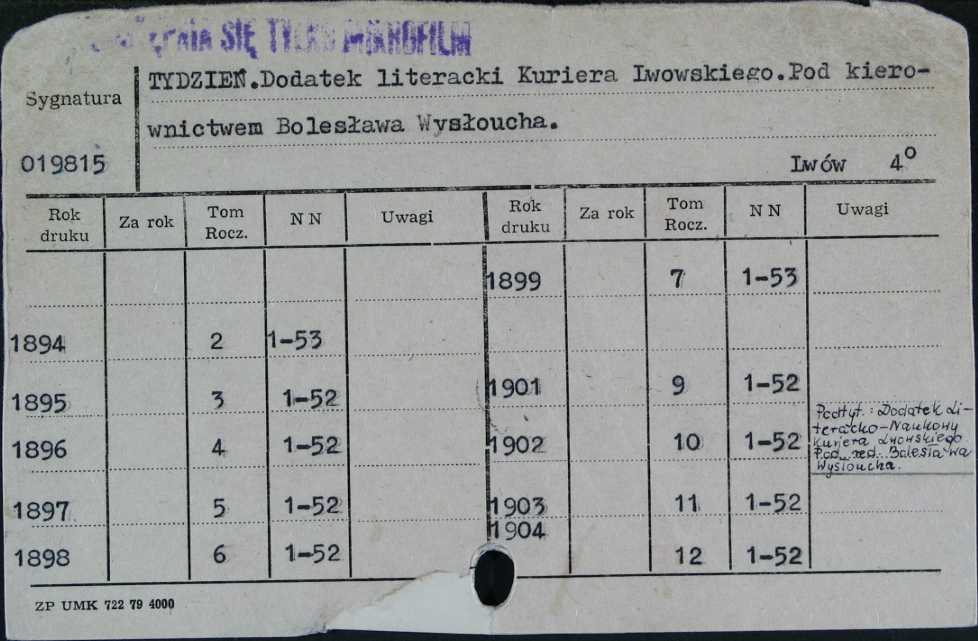 SIĘ TYLKO MIKROFILM
TYDZIEŃ.Dodatek literacki Kuriera Lwowskiego.Pod kiero-
Sygnatura
wnictwem Bolesława Wysłoucha.
019815
Lwów 4°
Rok druku Za rok Tom Rocz. N N Uwagi Rok druku Za rok Tom Rocz. N N Uwagi
1899 7 1-53
1894 2 1-53
1895 3 1-52 1901 9 1-52
1896 4 1-52 1902 10 1-52
Podtyt.: Dodatek Li-
teracko-Naukowy
Kuriera Lwowskiego
Pod red. Bolesława
Wysłoucha.
1897 5 1-52 1903 11 1-52
1904
1898 6 1-52 12 1-52
ZP UMK 722 79 4000